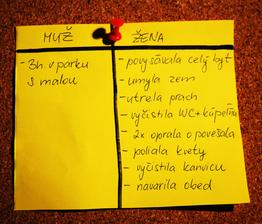 MUŽ
- 3h. v parku
s malou
ŽENA
- povysávala celý byt
- umyla zem
- utrela prach
- vyčistila WC + kúpeľňu
- 2x oprala a povešala
- poliala kvety
- vyčistila kanvicu
- navarila obed